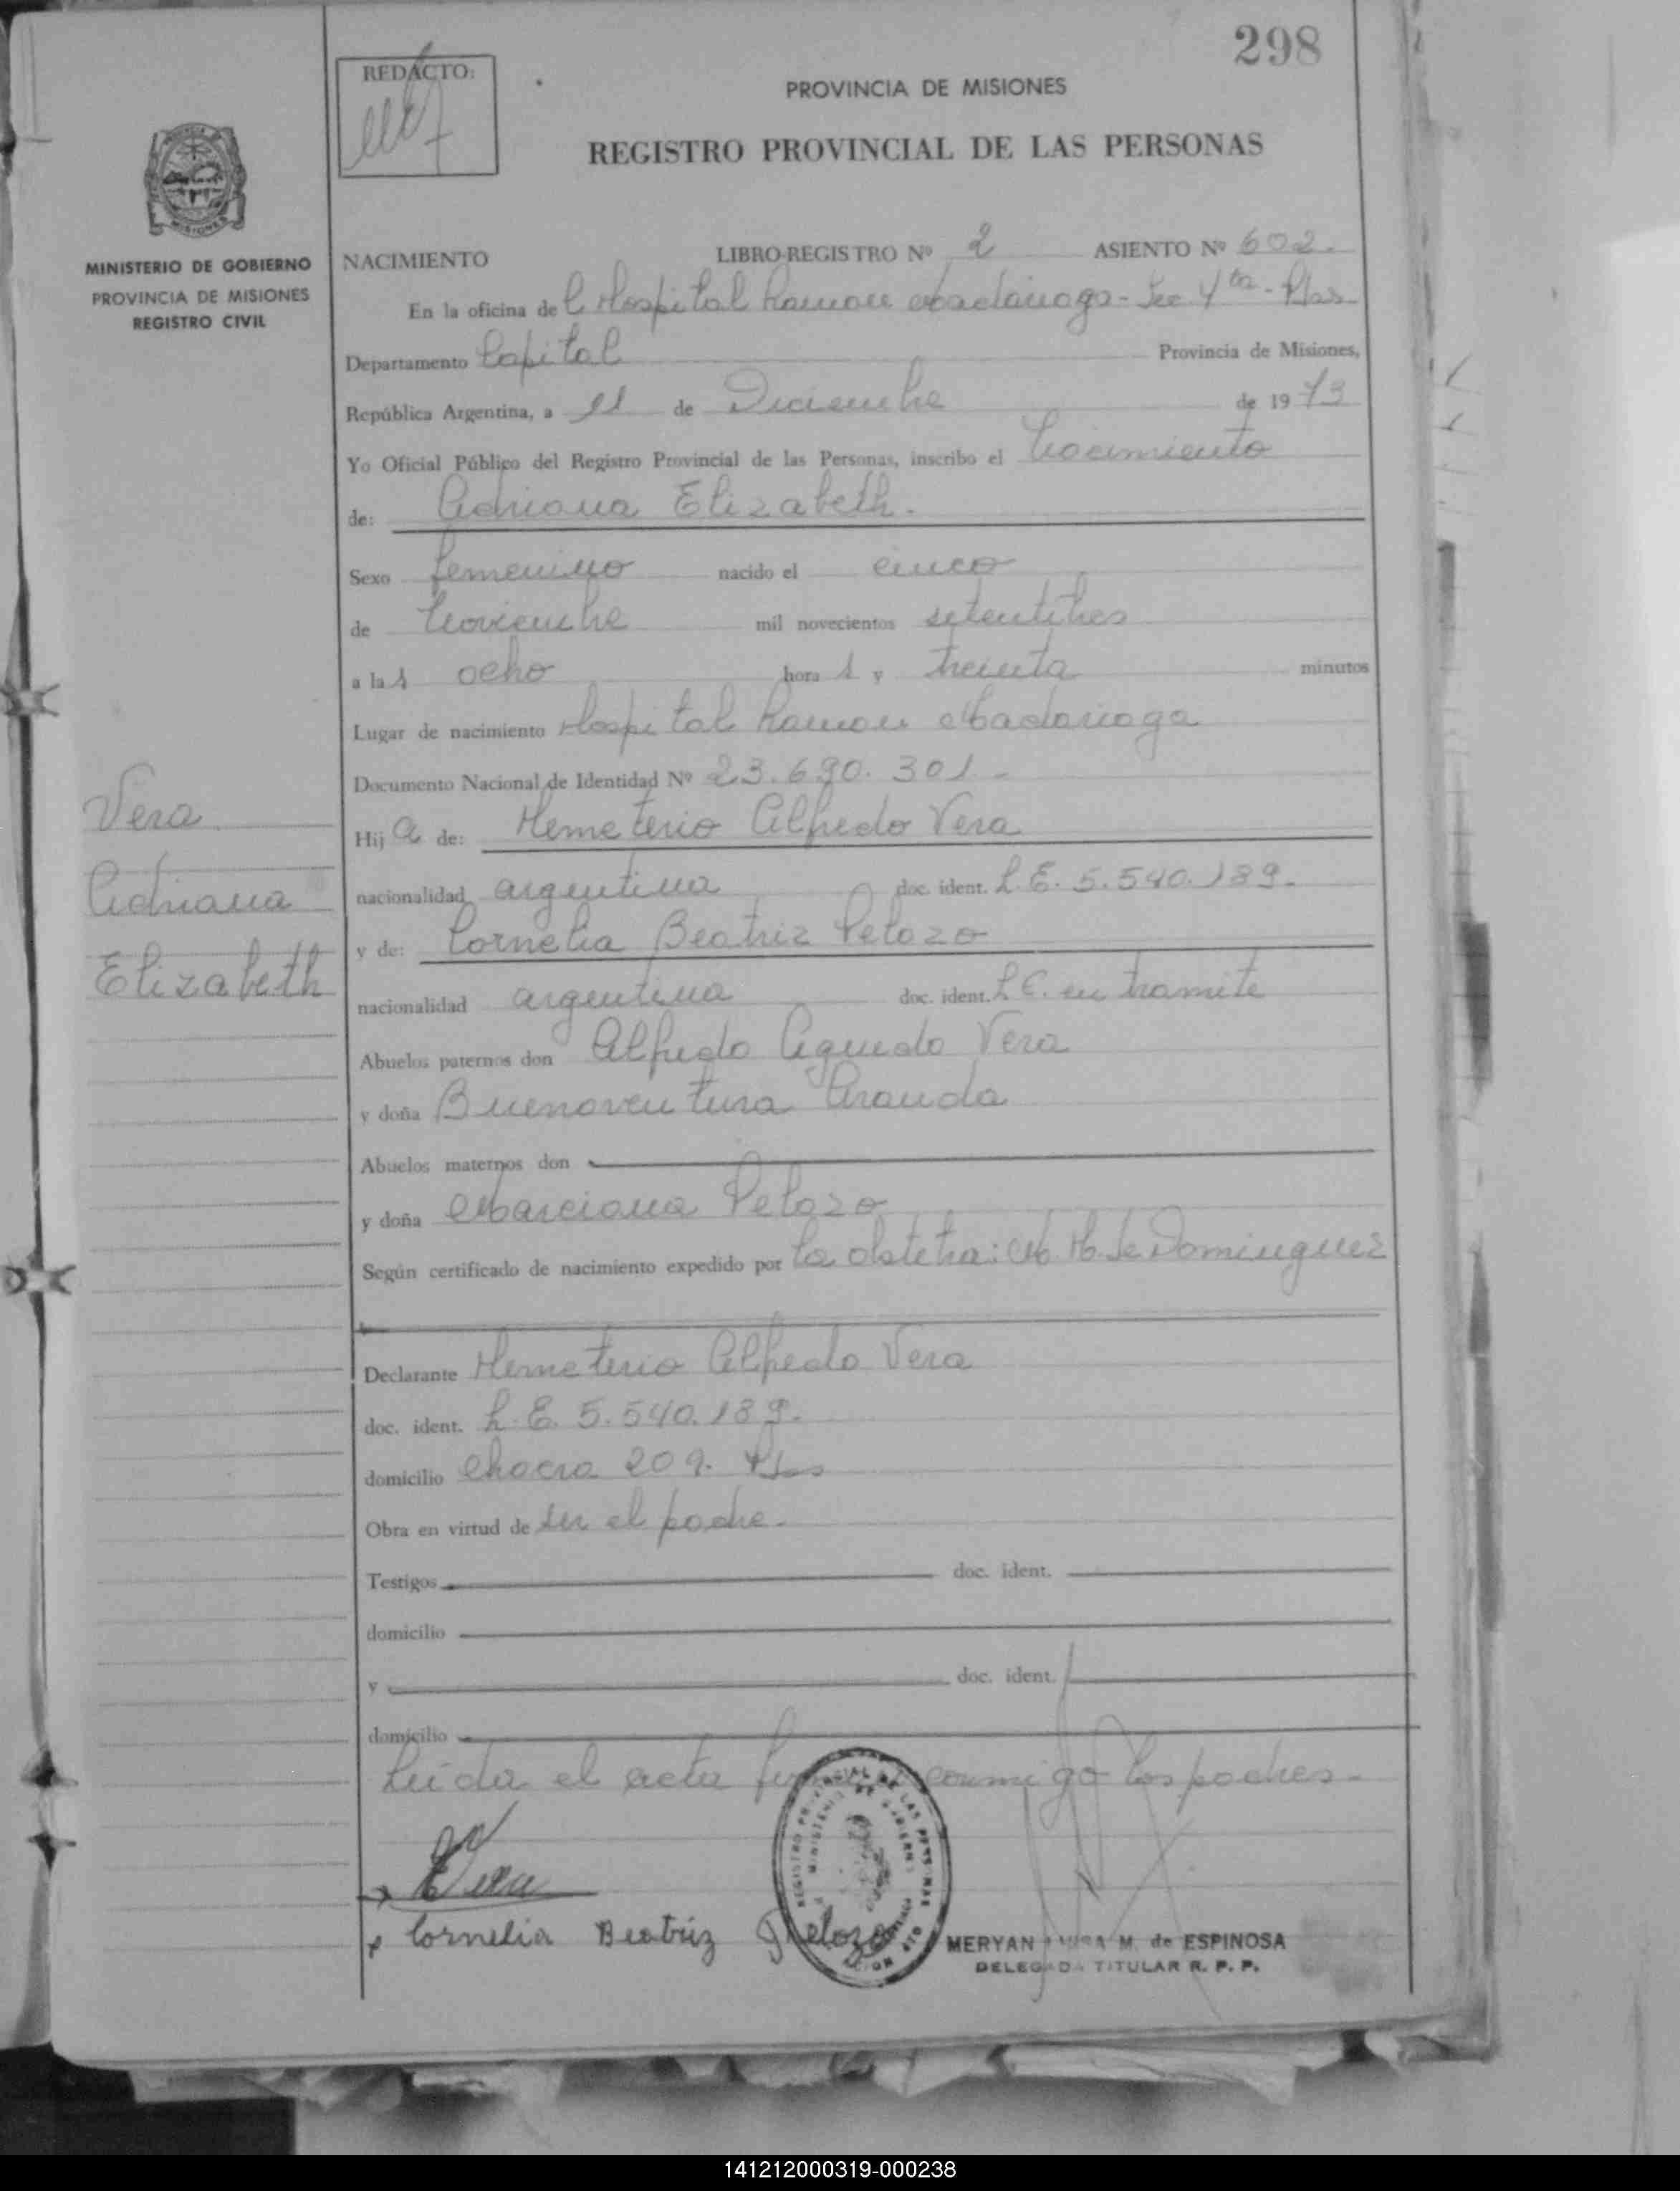 298
REDACTO:
PROVINCIA DE MISIONES
REGISTRO PROVINCIAL DE LAS PERSONAS
MINISTERIO DE GOBIERNO
PROVINCIA DE MISIONES
REGISTRO CIVIL
NACIMIENTO LIBRO-REGISTRO Nº 2 ASIENTO Nº 602.
En la oficina del Hospital Ramon Madariaga - Sec 4ta - Pdas
Departamento Capital Provincia de Misiones,
República Argentina, a 11 de Diciembre de 1973
Yo Oficial Público del Registro Provincial de las Personas, inscribo el Nacimiento
de: Adriana Elizabeth.
Sexo femenino nacido el cinco
de Noviembre mil novecientos setentitres
a las ocho horas y treinta minutos
Lugar de nacimiento Hospital Ramon Madariaga
Documento Nacional de Identidad Nº 23.690.301.-
Vera
Adriana
Elizabeth
Hija de: Hemeterio Alfredo Vera
nacionalidad argentina doc. ident. L.E. 5.540.189.-
y de: Cornelia Beatriz Pelozo
nacionalidad argentina doc. ident. L.C. en tramite
Abuelos paternos don Alfredo Aguedo Vera
y doña Buenaventura Aranda
Abuelos maternos don
y doña Marciana Pelozo
Según certificado de nacimiento expedido por la obstetra: M. H. de Dominguez
Declarante Hemeterio Alfredo Vera
doc. ident. L.E. 5.540.189.
domicilio Chacra 209. Pdas
Obra en virtud de ser el padre.-
Testigos doc. ident.
domicilio
y doc. ident.
domicilio
Leida el acta conmigo los padres.-
Vera
Cornelia Beatriz Pelozo
REGISTRO PROVINCIAL DE LAS PERSONAS
MINISTERIO DE GOBIERNO
MERYAN M. de ESPINOSA
DELEGADA TITULAR R. P. P.
141212000319-000238